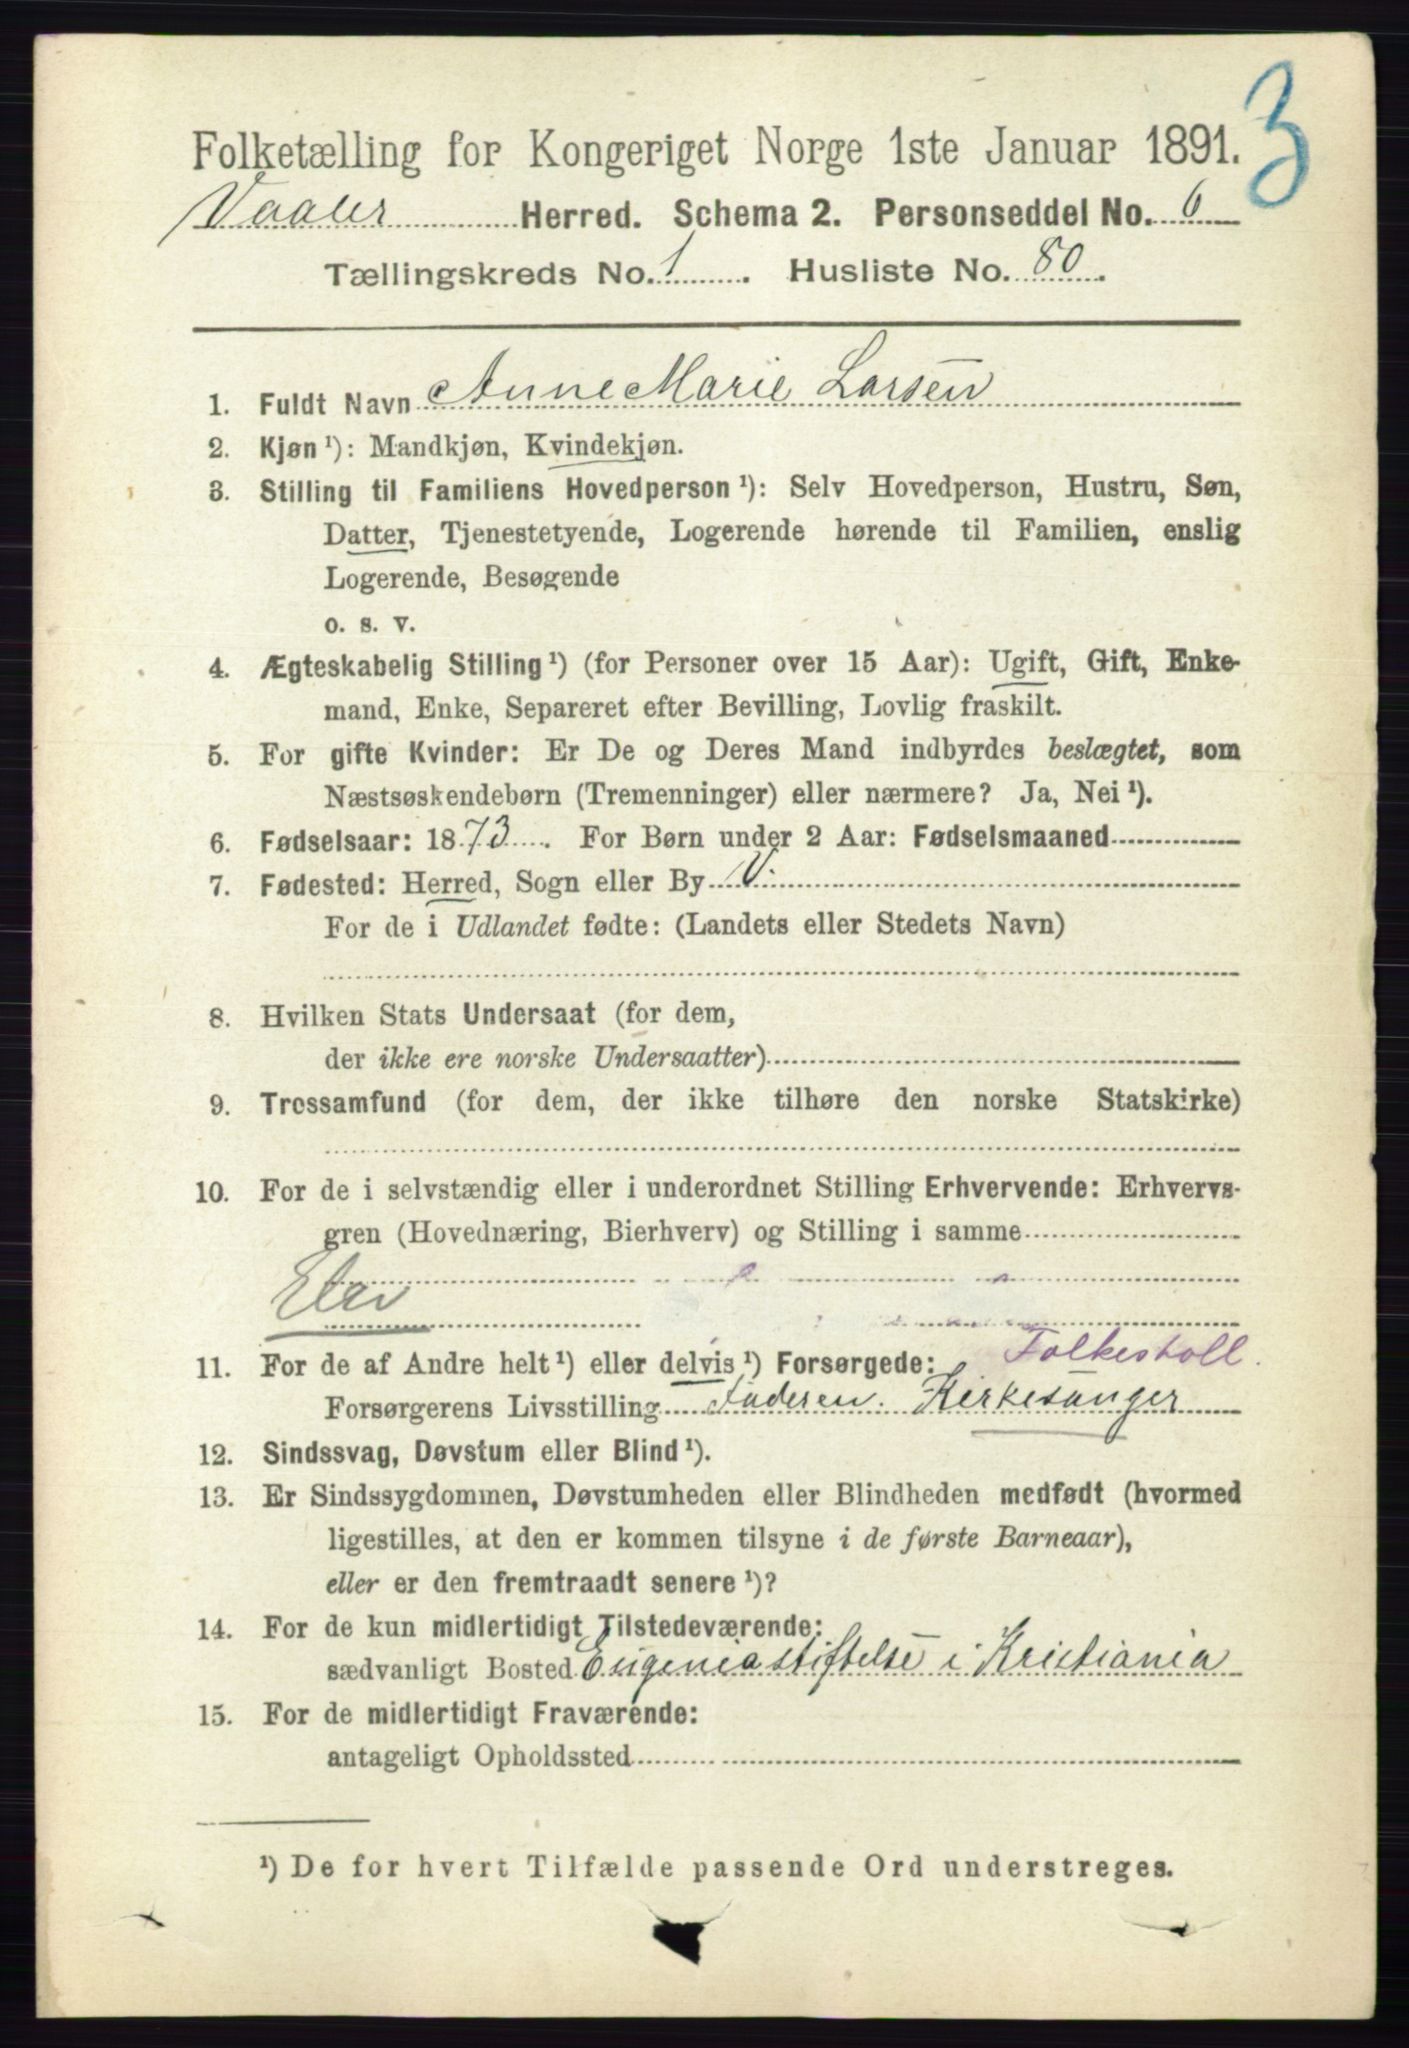 3
Folketælling for Kongeriget Norge 1ste Januar 1891.
Vaaler Herred. Schema 2. Personseddel No. 6
Tællingskreds No. 1. Husliste No. 80.
1. Fuldt Navn Anne Marie Larsen
2. Kjøn ¹): Mandkjøn, Kvindekjøn.
3. Stilling til Familiens Hovedperson ¹): Selv Hovedperson, Hustru, Søn,
Datter, Tjenestetyende, Logerende hørende til Familien, enslig
Logerende, Besøgende
o. s. v.
4. Ægteskabelig Stilling ¹) (for Personer over 15 Aar): Ugift, Gift, Enke-
mand, Enke, Separeret efter Bevilling, Lovlig fraskilt.
5. For gifte Kvinder: Er De og Deres Mand indbyrdes beslægtet, som
Næstsøskendebørn (Tremenninger) eller nærmere? Ja, Nei ¹).
6. Fødselsaar: 1873. For Børn under 2 Aar: Fødselsmaaned
7. Fødested: Herred, Sogn eller By V.
For de i Udlandet fødte: (Landets eller Stedets Navn)
8. Hvilken Stats Undersaat (for dem,
der ikke ere norske Undersaatter)
9. Trossamfund (for dem, der ikke tilhøre den norske Statskirke)
10. For de i selvstændig eller i underordnet Stilling Erhvervende: Erhvervs-
gren (Hovednæring, Bierhverv) og Stilling i samme
Elev
Folkeskoll.
11. For de af Andre helt ¹) eller delvis ¹) Forsørgede:
Forsørgerens Livsstilling Faderen. Kirkesanger
12. Sindssvag, Døvstum eller Blind ¹).
13. Er Sindssygdommen, Døvstumheden eller Blindheden medfødt (hvormed
ligestilles, at den er kommen tilsyne i de første Barneaar),
eller er den fremtraadt senere ¹)?
14. For de kun midlertidigt Tilstedeværende:
sædvanligt Bosted Eugenia stiftelse i Kristiania
15. For de midlertidigt Fraværende:
antageligt Opholdssted
¹) De for hvert Tilfælde passende Ord understreges.